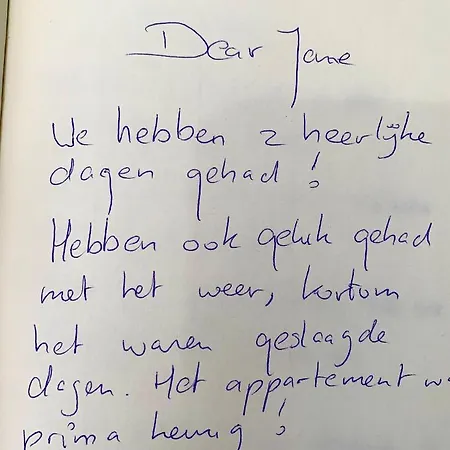 Dear Jane
We hebben 2 heerlijke
dagen gehad!
Hebben ook geluk gehad
met het weer, kortom
het waren geslaagde
dagen. Het appartement
prima!